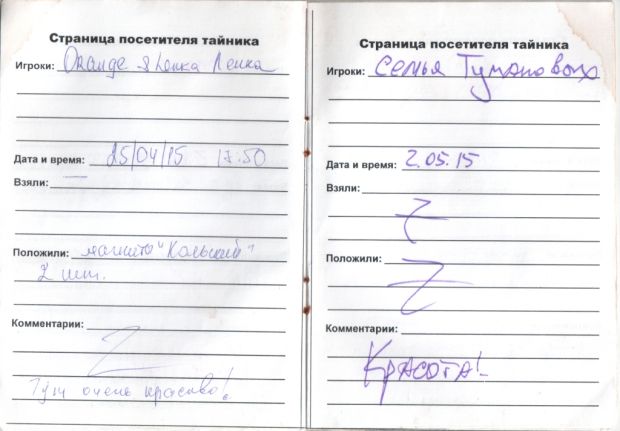 Страница посетителя тайника
Игроки: Orange & Ленка Пенка
Дата и время: 25/04/15 17:50
Взяли: —
Положили: магниты "Кольский"
2 шт.
Комментарии:
Тут очень красиво!
Страница посетителя тайника
Игроки: Семья Тумановых
Дата и время: 2.05.15
Взяли:
Положили:
Комментарии:
Красота!